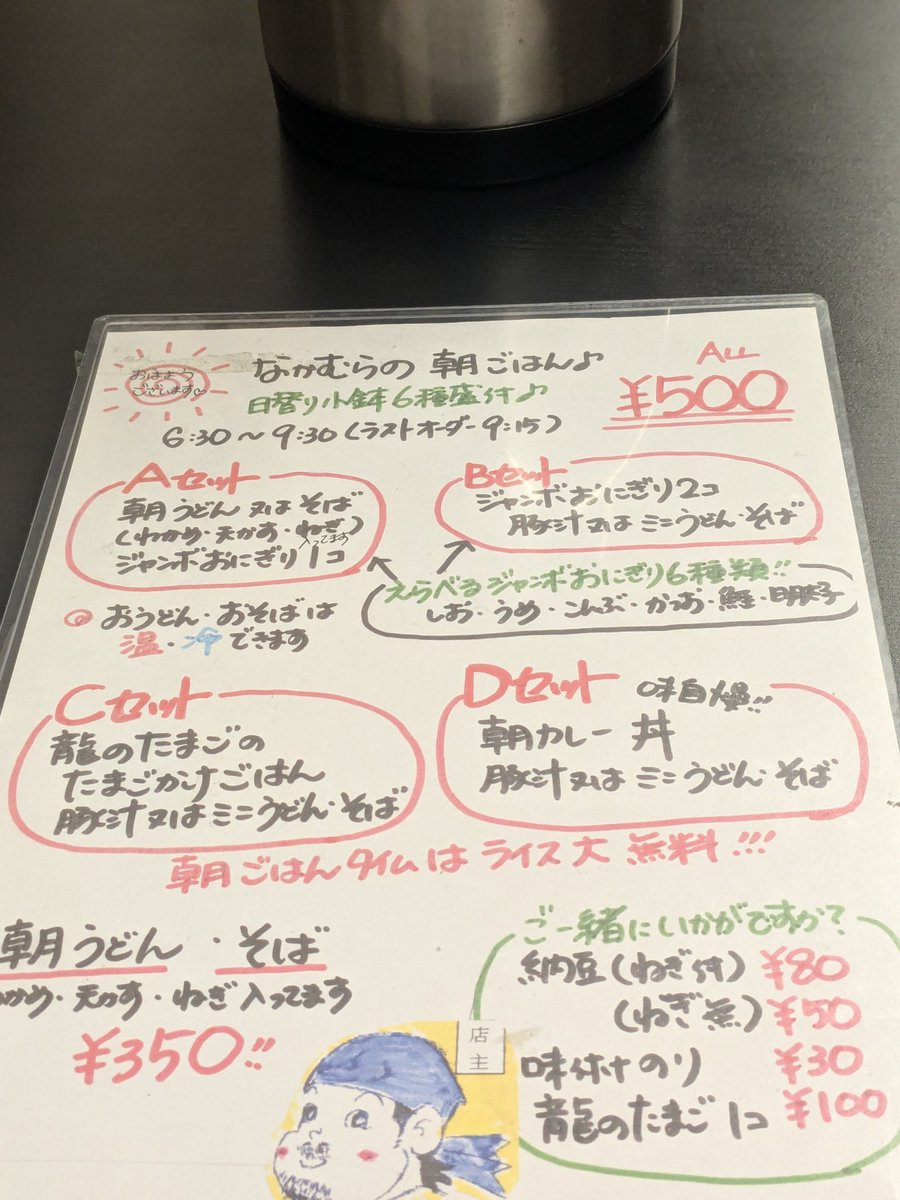 おはよう
ございます♡
なかむらの 朝ごはん♪
日替り小鉢6種盛付♪
6:30〜9:30(ラストオーダー9:15)
ALL
¥500
Aセット
朝うどん 又は そば
(わかめ・天かす・ねぎ)
入ってます
ジャンボおにぎり1コ
Bセット
ジャンボおにぎり2コ
豚汁又は ミニうどん・そば
えらべるジャンボおにぎり6種類!!
しお・うめ・こんぶ・かつお・鮭・明太子
◎おうどん・おそばは
温・冷できます
Cセット
龍のたまごの
たまごかけごはん
豚汁又はミニうどん・そば
Dセット 味自慢!!
朝カレー丼
豚汁又は ミニうどん・そば
朝ごはんタイムは ライス大 無料!!!
朝うどん・そば
かめ・天かす・ねぎ入ってます
¥350!!
店主
ご一緒にいかがですか?
納豆(ねぎ付) ¥80
(ねぎ無) ¥50
味付のり ¥30
龍のたまご1コ ¥100